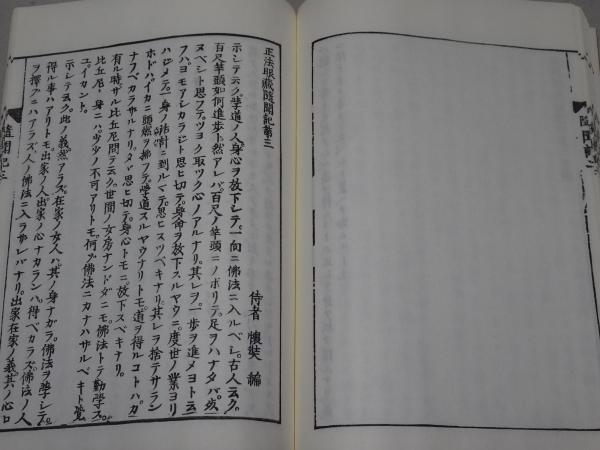 正法眼蔵随聞記第三
侍者 懐奘 編
示シテ云ク。学道ノ人身心ヲ放下シテ。一向ニ佛法ニ入ルベシ。古人云ク。
百尺竿頭如何進歩ト。然アレバ。百尺ノ竿頭ニノボリテ。足ヲハナタバ。死
ヌベシト思フテ。ツヨク取ツク心ノアルナリ。其レヲ。一歩ヲ進メヨト云
フハ。ヨモアシカラジト思ヒ切テ。身命ヲ放下スルヤウニ。度世ノ業ヨリ
ハジメテ。一身ノ活計ニ到ルマデ。思ヒスツベキナリ。其レヲ捨テザラン
ホドハ。イカニ頭燃ヲ拂フテ。学道スルヤウナリトモ。道ヲ得ルコトハ。カ
ナフベカラザルナリ。タヾ思ヒ切テ。身心トモニ放下スベキナリ。
有ル時。サル比丘尼問テ云ク。世間ノ女房ナンドダニモ。佛法トテ勤学ス。
比丘尼ノ身ニハ。少々ノ不可アリトモ。何ゾ佛法ニカナハザルベキト覚
ユ。イカント。
示シテ云ク。此ノ義然アラズ。在家ノ女人ハ。其ノ身ナガラ。佛法ヲ学シテ。
得ル事ハアリトモ。出家ノ人ハ出家ノ心ナカランハ。得ベカラズ。佛法ノ人
ヲ擇ブニハアラズ。人ノ佛法ニ入ラザレバナリ。出家在家ノ義。其ノ心
随聞記三